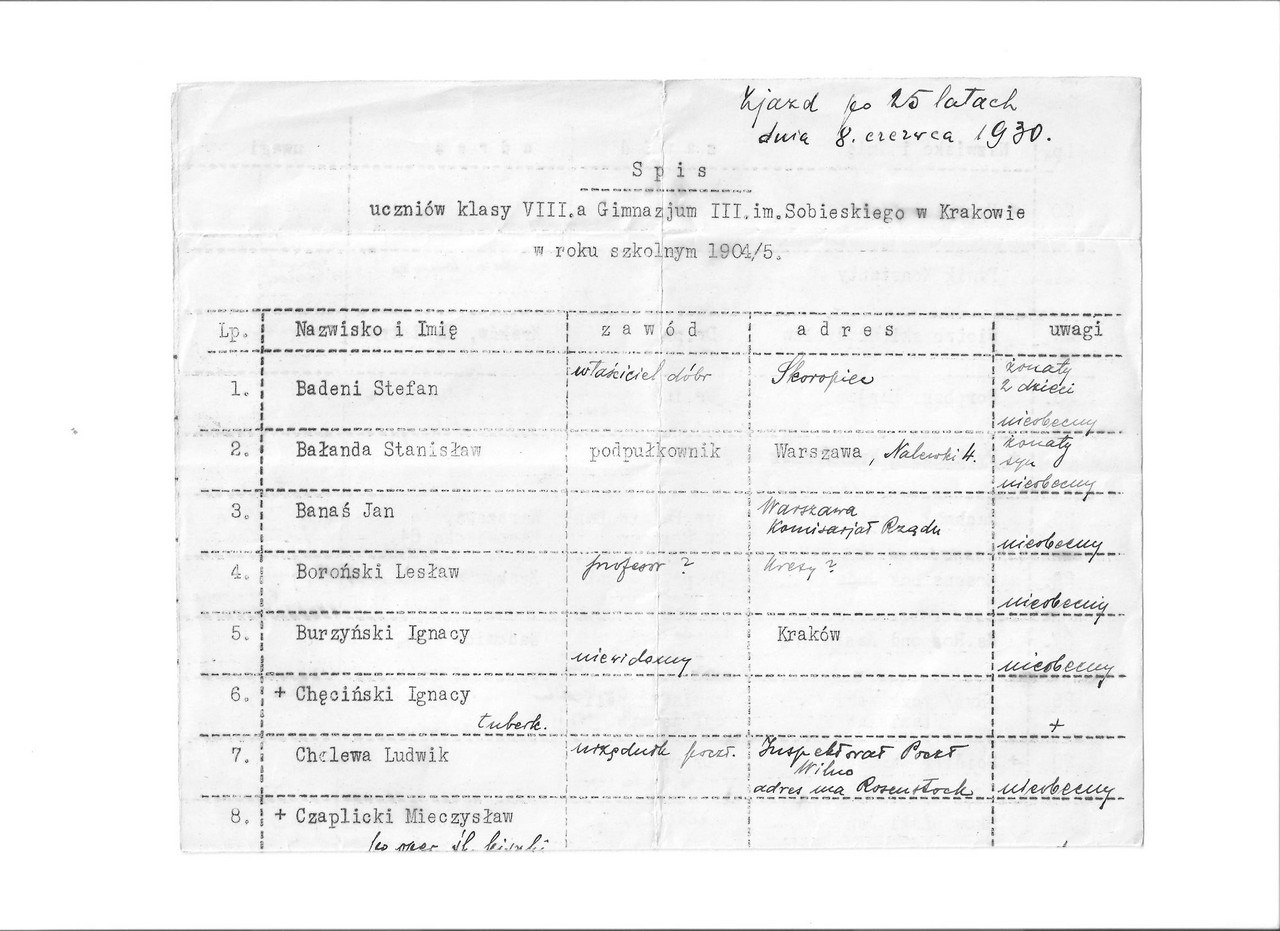 Zjazd po 25 latach
dnia 8. czerwca 1930.
Spis
uczniów klasy VIII.a Gimnazjum III.im.Sobieskiego w Krakowie
w roku szkolnym 1904/5.
Lp. Nazwisko i Imię zawód adres uwagi
1. Badeni Stefan właściciel dóbr żonaty
2 dzieci
nieobecny
2. Bałanda Stanisław podpułkownik Warszawa, Nalewki 4. żonaty
syn
nieobecny
3. Banaś Jan Warszawa
Komisarjat Rządu
nieobecny
4. Boroński Lesław profesor ? Kresy ?
nieobecny
5. Burzyński Ignacy Kraków
niewidomy nieobecny
6. + Chęciński Ignacy
tuberk. +
7. Cholewa Ludwik urzędnik poczt. Inspektorat Poczt
Wilno
adres ma Rosenstock nieobecny
8. + Czaplicki Mieczysław
po oper. śl. kiszki